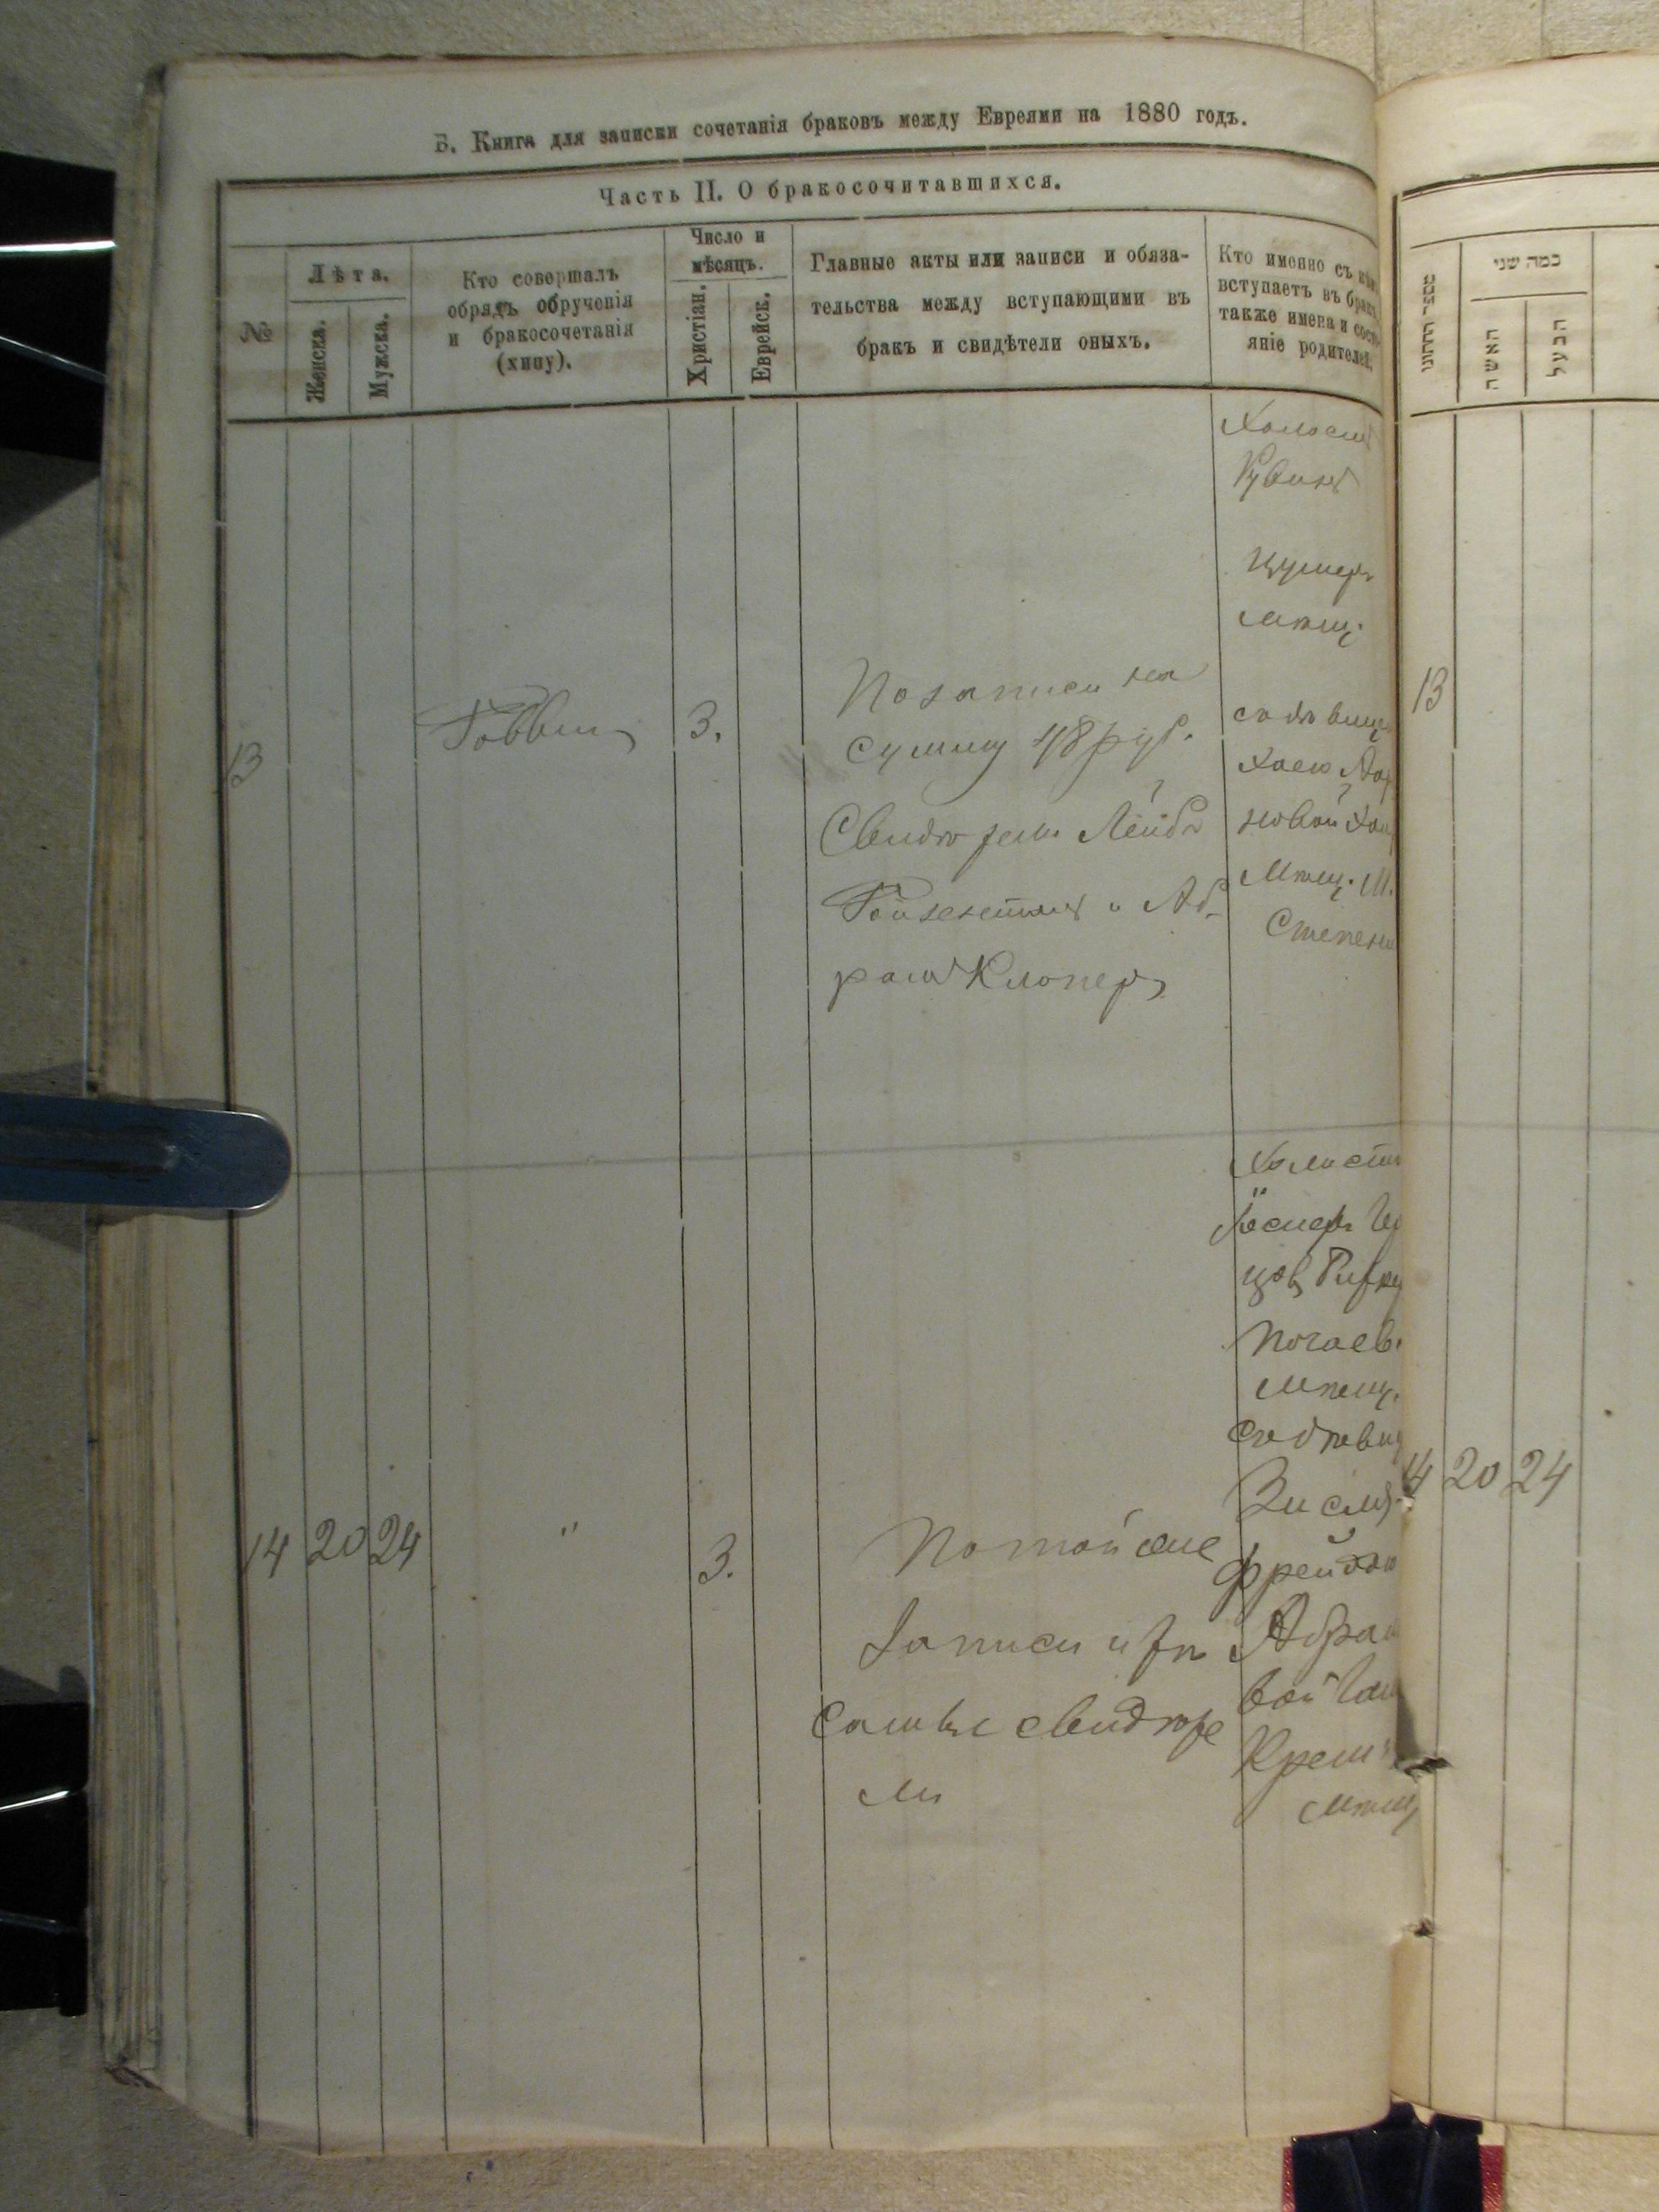 В. Книга для записки сочетанія браковъ между Евреями на 1880 годъ.
Часть II. О бракосочитавшихся.
№
Лѣта.
Женска.
Мужска.
Кто совершалъ
обрядъ обрученія
и бракосочетанія
(хипу).
Число и
мѣсяцъ.
Христіан.
Еврейск.
Главные акты или записи и обяза-
тельства между вступающими въ
бракъ и свидѣтели оныхъ.
Кто именно съ кѣмъ
вступаетъ въ бракъ
также имена и состо-
яніе родителей.
13
Раввинъ
3.
По записи на
сумму 48 руб.
Свидѣтели Лейбъ
и Аб-
рамъ Клоперъ
Холост
Рувинъ
мѣщ.
съ дѣвице
Хаею
новой
Мѣщ. М.
Степен
14
20
24
"
3.
По той же
записи и тѣ
самые свидѣте
ли
Холост
Почаев
мѣщ.
съ дѣвиц
Фрейдою
Абрам
вой
Крем
мѣщ
מספר החתוני
כמה שני
האשה
הבעל
13
14
20
24